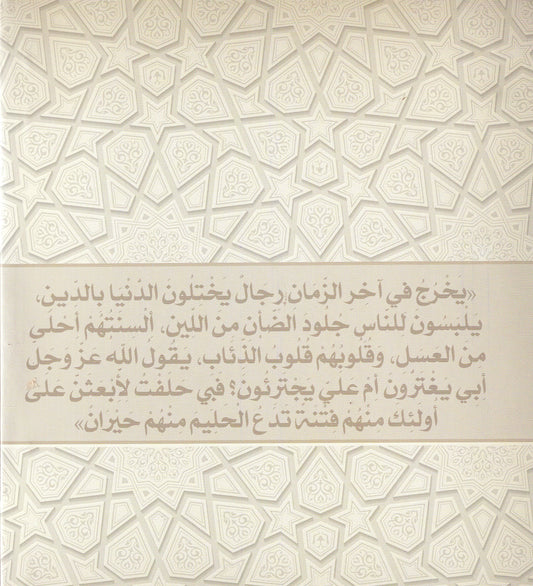 «يَخْرُجُ في آخِرِ الزَّمان رِجالٌ يَخْتِلُونَ الدُنْيا بِالدين،
يلبَسُونَ لِلنَّاسِ جُلودَ الضَّأن مِنَ اللين، ألسِنَتُهُم أحْلى
من العسل، وقُلوبُهُم قُلوبُ الذئاب، يقولُ الله عزّ وجل
أبي يَغْتَرُّون أم علَيّ يجْتَرِئون؟ فبي حلفت لأبعثن على
أولئِك منهُم فِتْنة تدَعُ الحليم مِنهُم حَيْرَانْ»